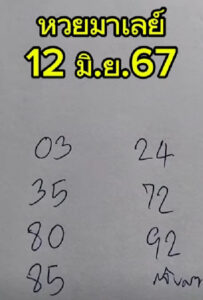 หวยมาเลย์
12 มิ.ย.67
03 24
35 72
80 92
85